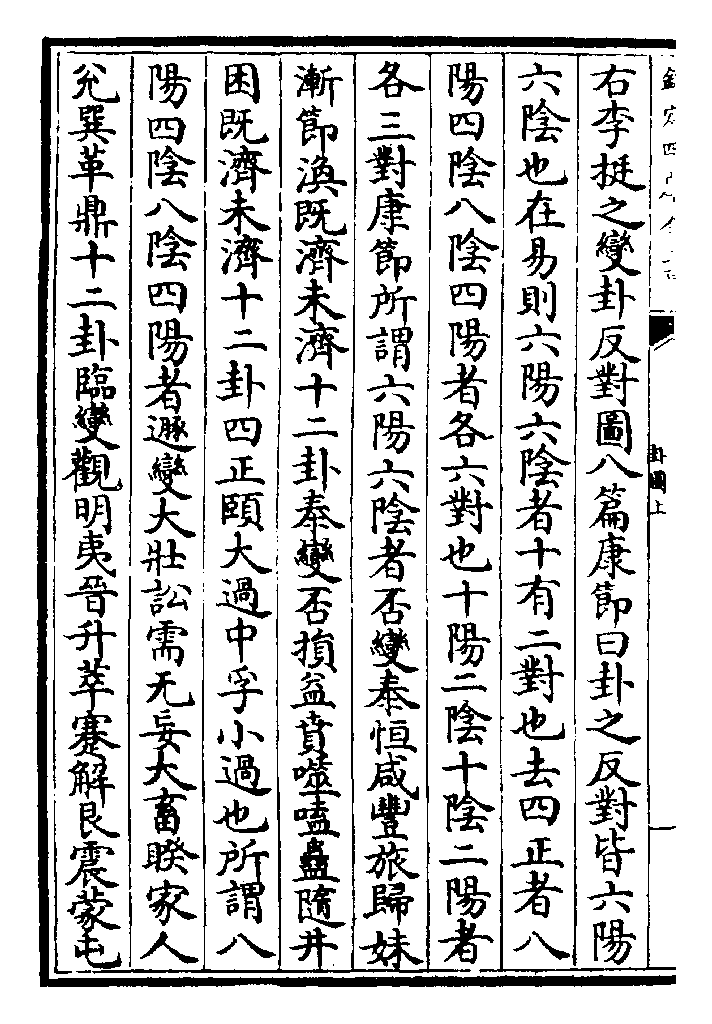 右李挺之變卦反對圖八篇康節曰卦之反對皆六陽
六陰也在易則六陽六陰者十有二對也去四正者八
陽四陰八陰四陽者各六對也十陽二陰十陰二陽者
各三對康節所謂六陽六陰者否變泰恒咸豐旅歸妹
漸節渙既濟未濟十二卦泰變否損益賁噬嗑蠱隨井
困既濟未濟十二卦四正頤大過中孚小過也所謂八
陽四陰八陰四陽者遯變大壯訟需无妄大畜睽家人
兊巽革鼎十二卦臨變觀明夷晉升萃蹇解艮震蒙屯
卦圖上
一